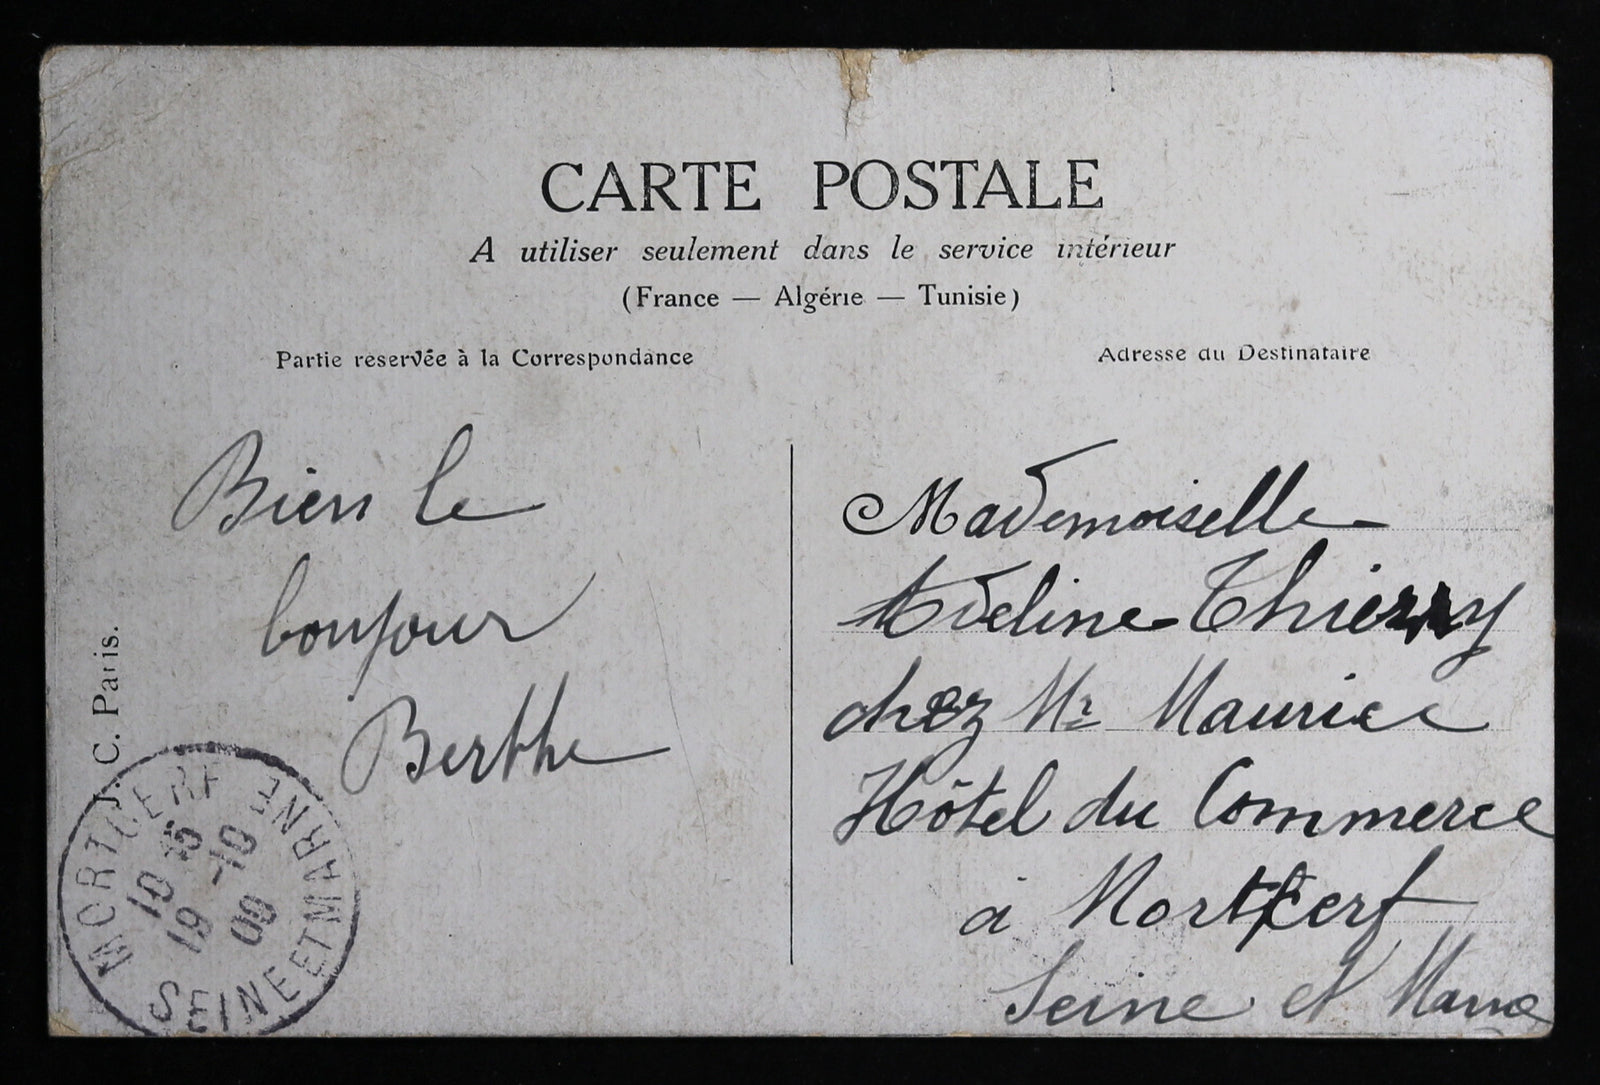 CARTE POSTALE
A utiliser seulement dans le service intérieur
(France — Algérie — Tunisie)
Partie reservée à la Correspondance
Adresse du Destinataire
Bien le
bonjour
Berthe
Mademoiselle
Adeline Thierry
chez Mr Maurice
Hôtel du Commerce
à Mortcerf
Seine et Marne
J. C. Paris.
MORTCERF
SEINE ET MARNE
10 15
19 -10
09